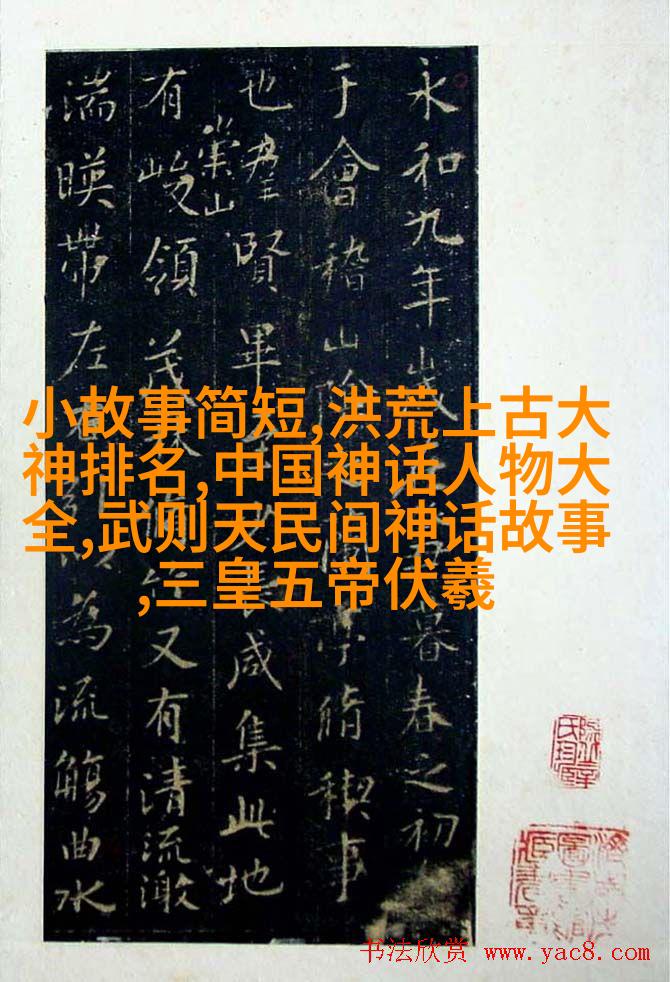 永和九年歲暮春之初
于會稽山陰亭脩稧事
也羣賢畢咸集此地
有崇山峻領茂又有清流激
湍暎帶左為流觴曲水
小故事简短,洪荒上古大
神排名,中国神话人物大
全,武则天民间神话故事
,三皇五帝伏羲
书法欣赏 www.yac8.com